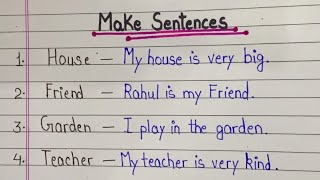 Make Sentences
1. House – My house is very big.
2. Friend – Rahul is my Friend.
3. Garden – I play in the garden.
4. Teacher – My teacher is very kind.